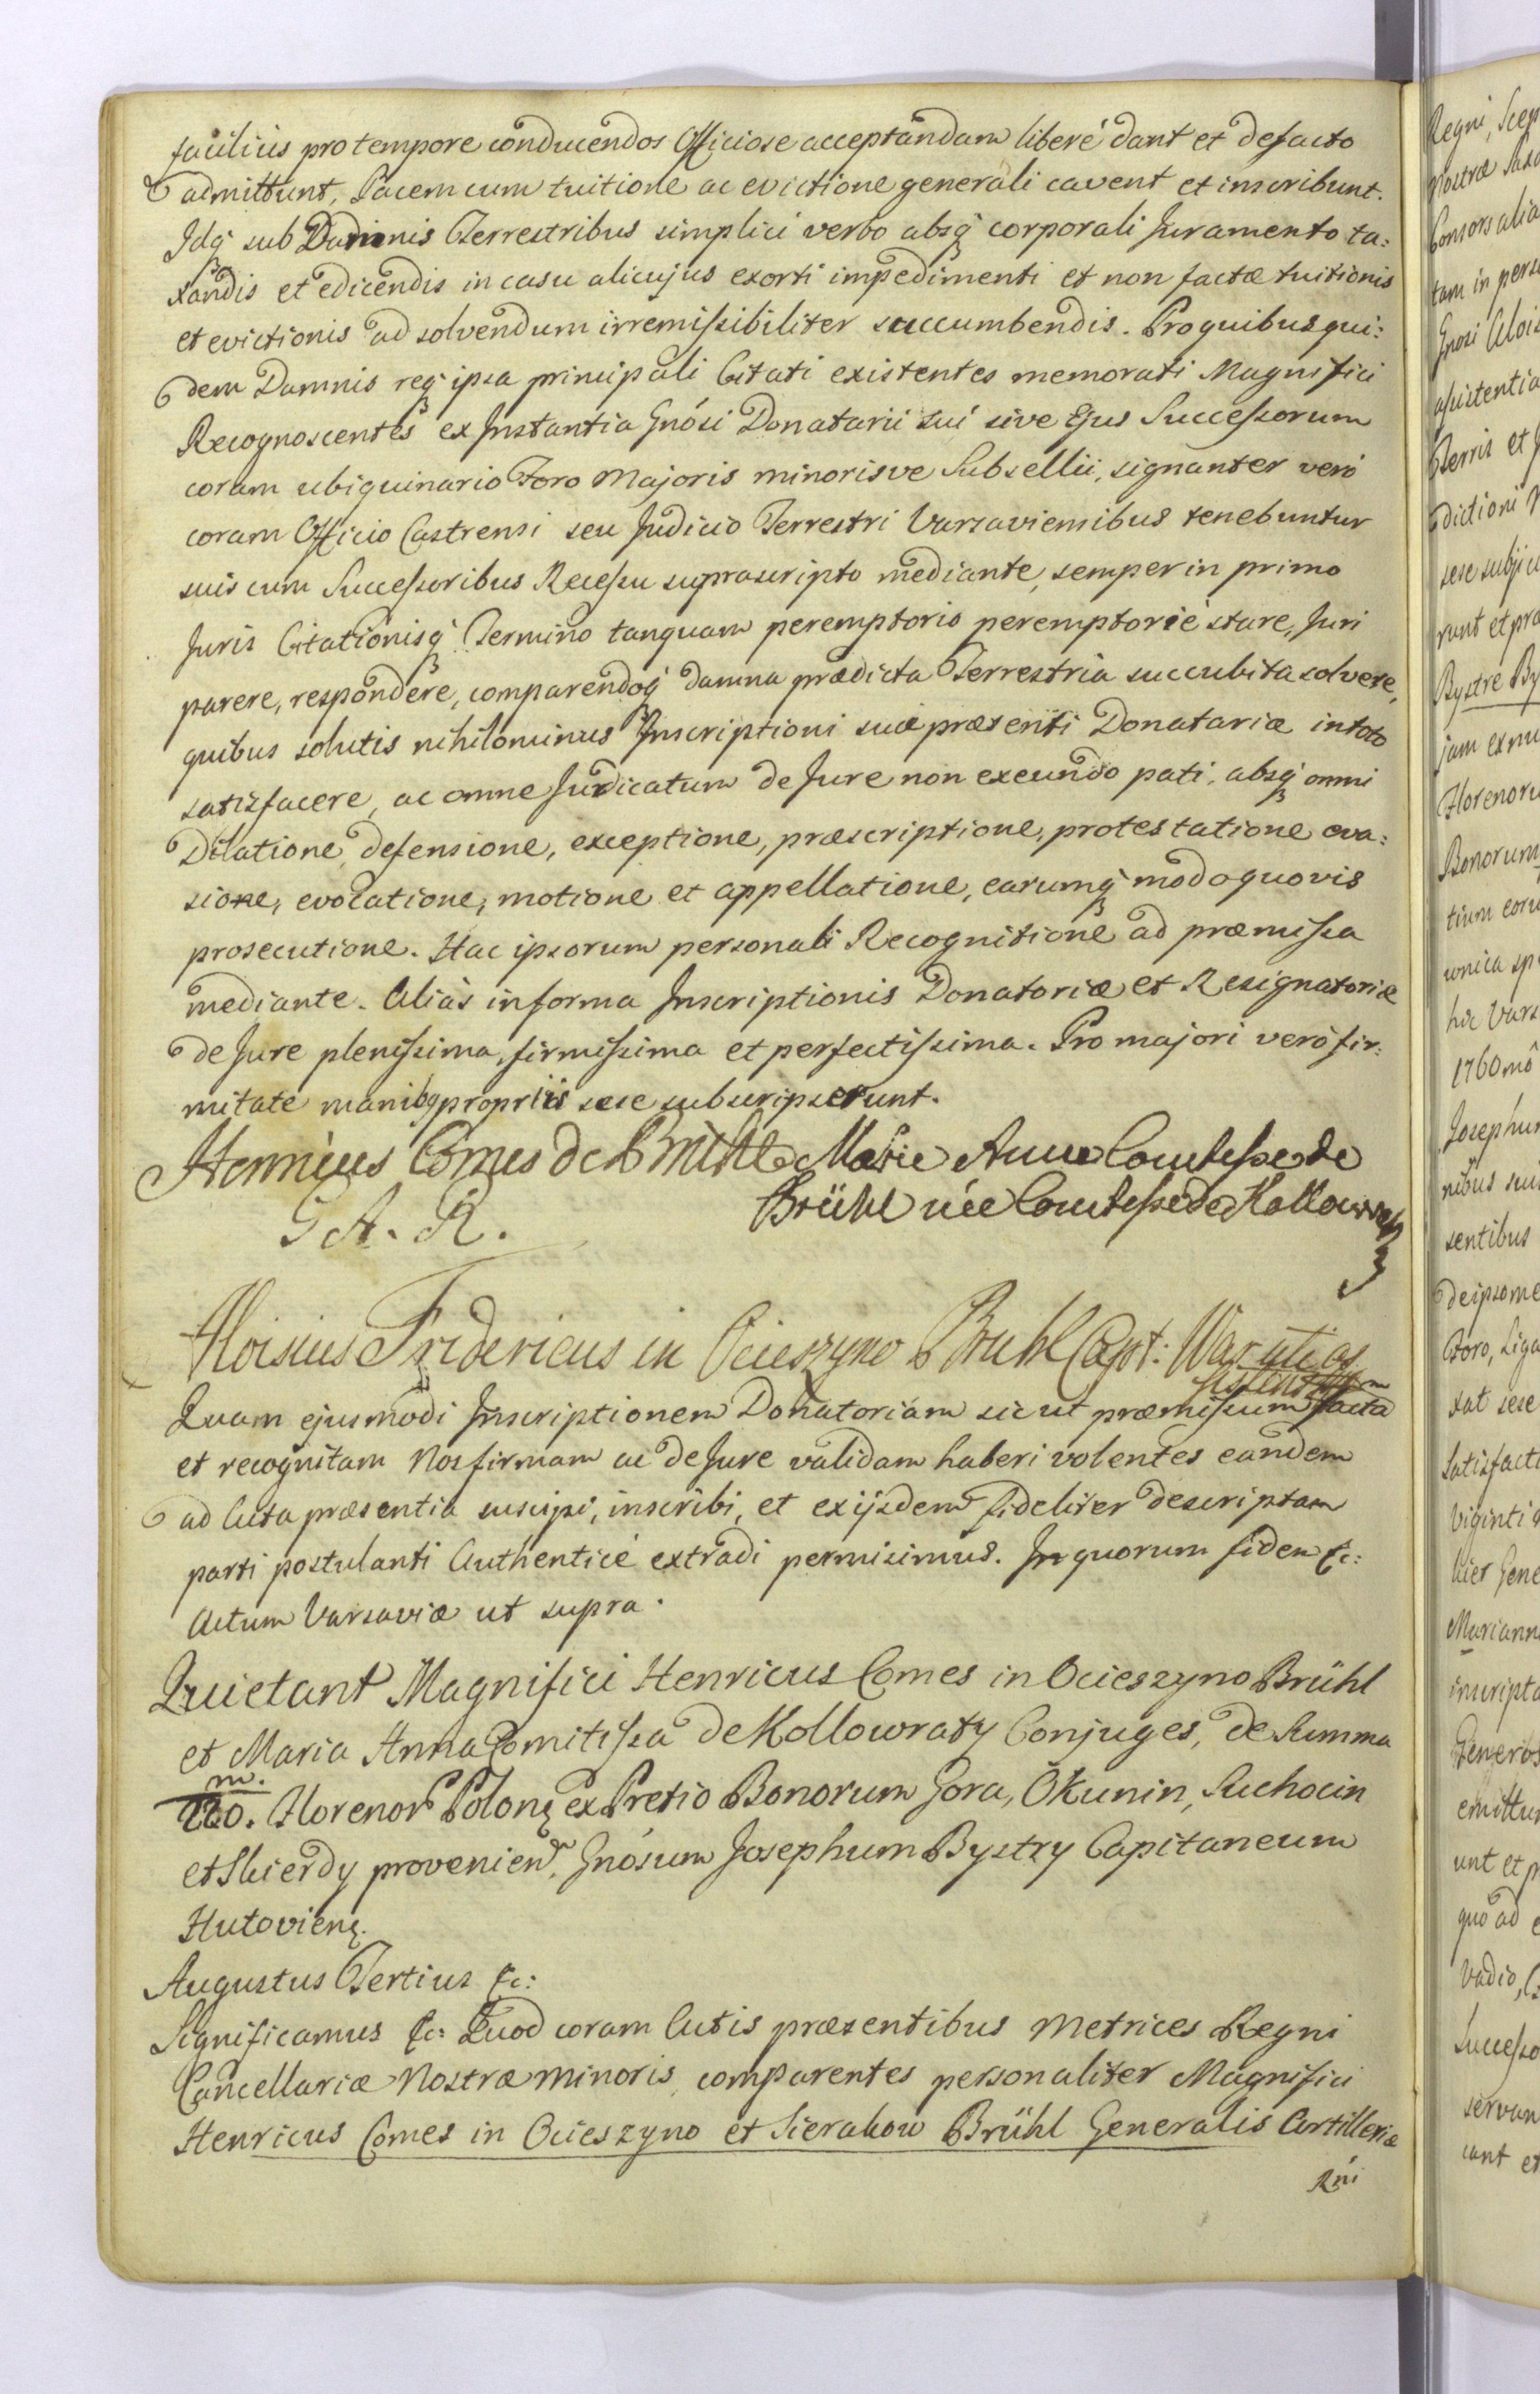 facilius pro tempore conducendos Officiose acceptandam liberé dant et defacto
admittunt, Pacem cum tuitione ac evictione generali cavent et inscribunt.
Idq̃ sub Damnis Terrestribus simplici verbo absq̃ corporali Juramento ta:
xandis et edicendis in casu alicujus exorti impedimenti et non factæ tuitionis
et evictionis ad solvendum irremissibiliter succumbendis. Pro quibus qui:
dem Damnis req̃ ipsa principali Citati existentes memorati Magnifici
Recognoscentes ex Instantia Gnósi Donatarii sui sive Ejus Successorum
coram ubiquinario Foro Majoris minorisve Subsellii, signanter veró
coram Officio Castrensi seu Judicio Terrestri Varsaviensibus tenebuntur
suis cum Successoribus Recessu suprascripto mediante, semper in primo
Juris Citationisq̃ Termino tanquam peremptorio peremptorié stare, Juri
parere, respondere, comparendoq̃ damna prædicta Terrestria succubita solvere,
quibus solutis nihilominus Inscriptioni suæ præsenti Donatariæ in toto
satisfacere, ac omne Judicatum de Jure non exeundo pati, absq̃ omni
Dilatione, defensione, exceptione, præscriptione, protestatione eva:
sione, evocatione, motione et appellatione, earumq̃ modo quovis
prosecutione. Hac ipsorum personali Recognitione ad præmissa
mediante. Aliàs in forma Inscriptionis Donatoriæ et Resignatoriæ
de Jure plenissima, firmissima et perfectissima. Pro majori veró fir:
mitate manibq propriis sese subscripserunt.
Henricus Comes de Brühl Marie Anne Comtesse de
G A. R. Brühl née Comtesse de Kollowrath
Aloisius Fridericus in Ocieszyno Brühl Capt: War: uti as
sistens
Quam ejusmodi Inscriptionem Donatoriam sic ut præmissum facta
et recognitam Nos firmam ac de Jure validam haberi volentes eandem
ad Acta præsentia suscipi, inscribi, et exijsdem fideliter descriptam
parti postulanti Authenticé extradi permisimus. In quorum fidem &c:
Actum Varsaviæ ut supra.
Quietant Magnifici Henricus Comes in Ocieszyno Brühl
et Maria Anna Comitissa de Kollowraty Conjuges, de Summa
m.
220. Florenor Polonę ex Pretio Bonorum Gora, Okunin, Suchocin
et Skierdy provenien. Gnósum Josephum Bystry Capitaneum
Hutovienę.
Augustus Tertius &c:
Significamus &c: Quod coram Actis præsentibus Metrices Regni
Cancellariæ Nostræ Minoris, comparentes personaliter Magnifici
Henricus Comes in Ocieszyno et Sierakow Brühl Generalis Artilleriæ
Rńi
Regni, Scep
Nostræ
Consors alia
tam in pers
Gnosi Alois
assistentia
Terris et J
dictioni
sese subjic
runt et pra
Bystre By
jam ex nu
Florenoru
Bonorum
tium coru
unica sp
hic Vars
1760 mô
Josephum
nibus sui
sentibus
de ipsome
Foro, Liga
xat sese
Satisfacti
Viginti
lier Gene
Marianna
inscripta
Generos
emittun
unt et p
quo ad
Vadio,
Successo
servan
cant et